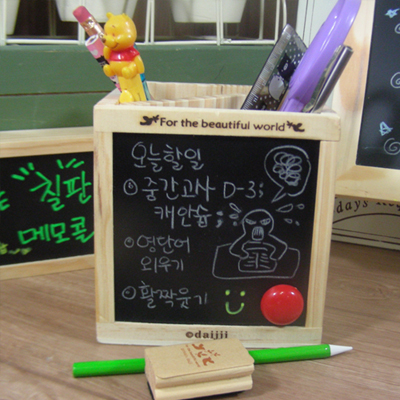 For the beautiful world
오늘할일
중간고사 D-3;
캐안습;;
영단어
외우기
활짝웃기
©daijji
칠판
메모콜
days